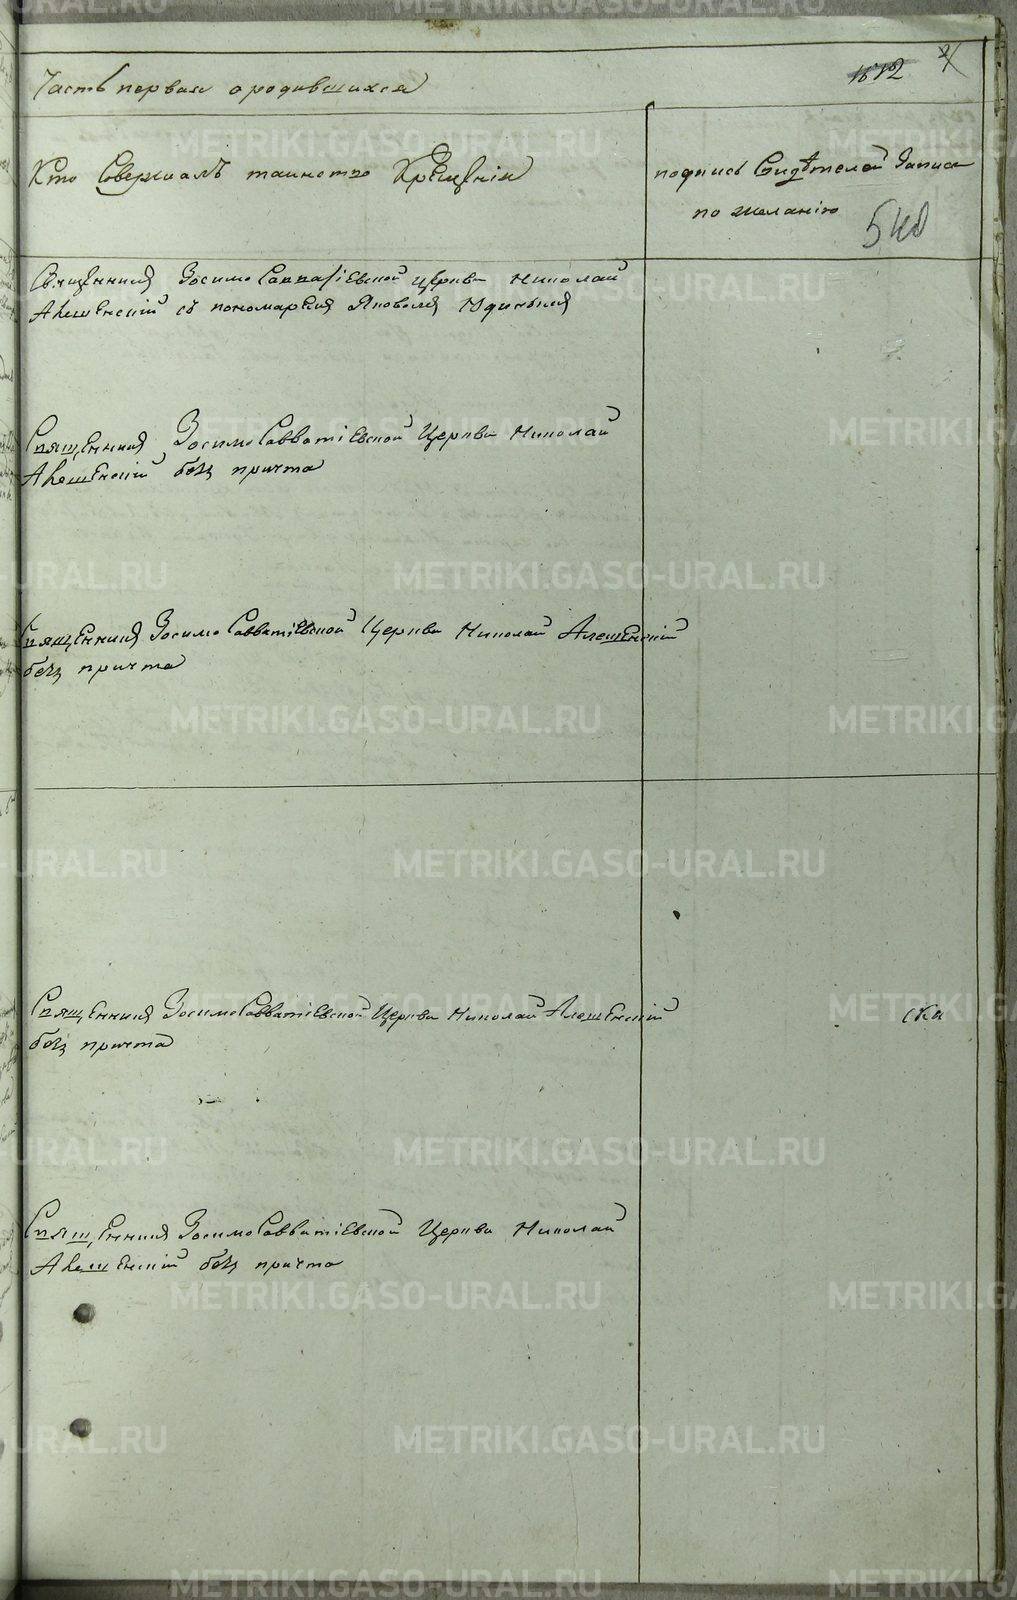 Часть первая о родившихся
1812
Кто Совершалъ таинство Крещенія
подпись Свидѣтелей Записи
по желанію
540
Священникъ Зосимо Савватіевской церкви Николай
съ пономаремъ Яковомъ Юдинымъ
Священникъ Зосимо Савватіевской Церкви Николай
безъ причта
Священникъ Зосимо Савватіевской Церкви Николай
безъ причта
Священникъ Зосимо Савватіевской Церкви Николай
безъ причта
Священникъ Зосимо Савватіевской Церкви Николай
безъ причта
METRIKI.GASO-URAL.RU